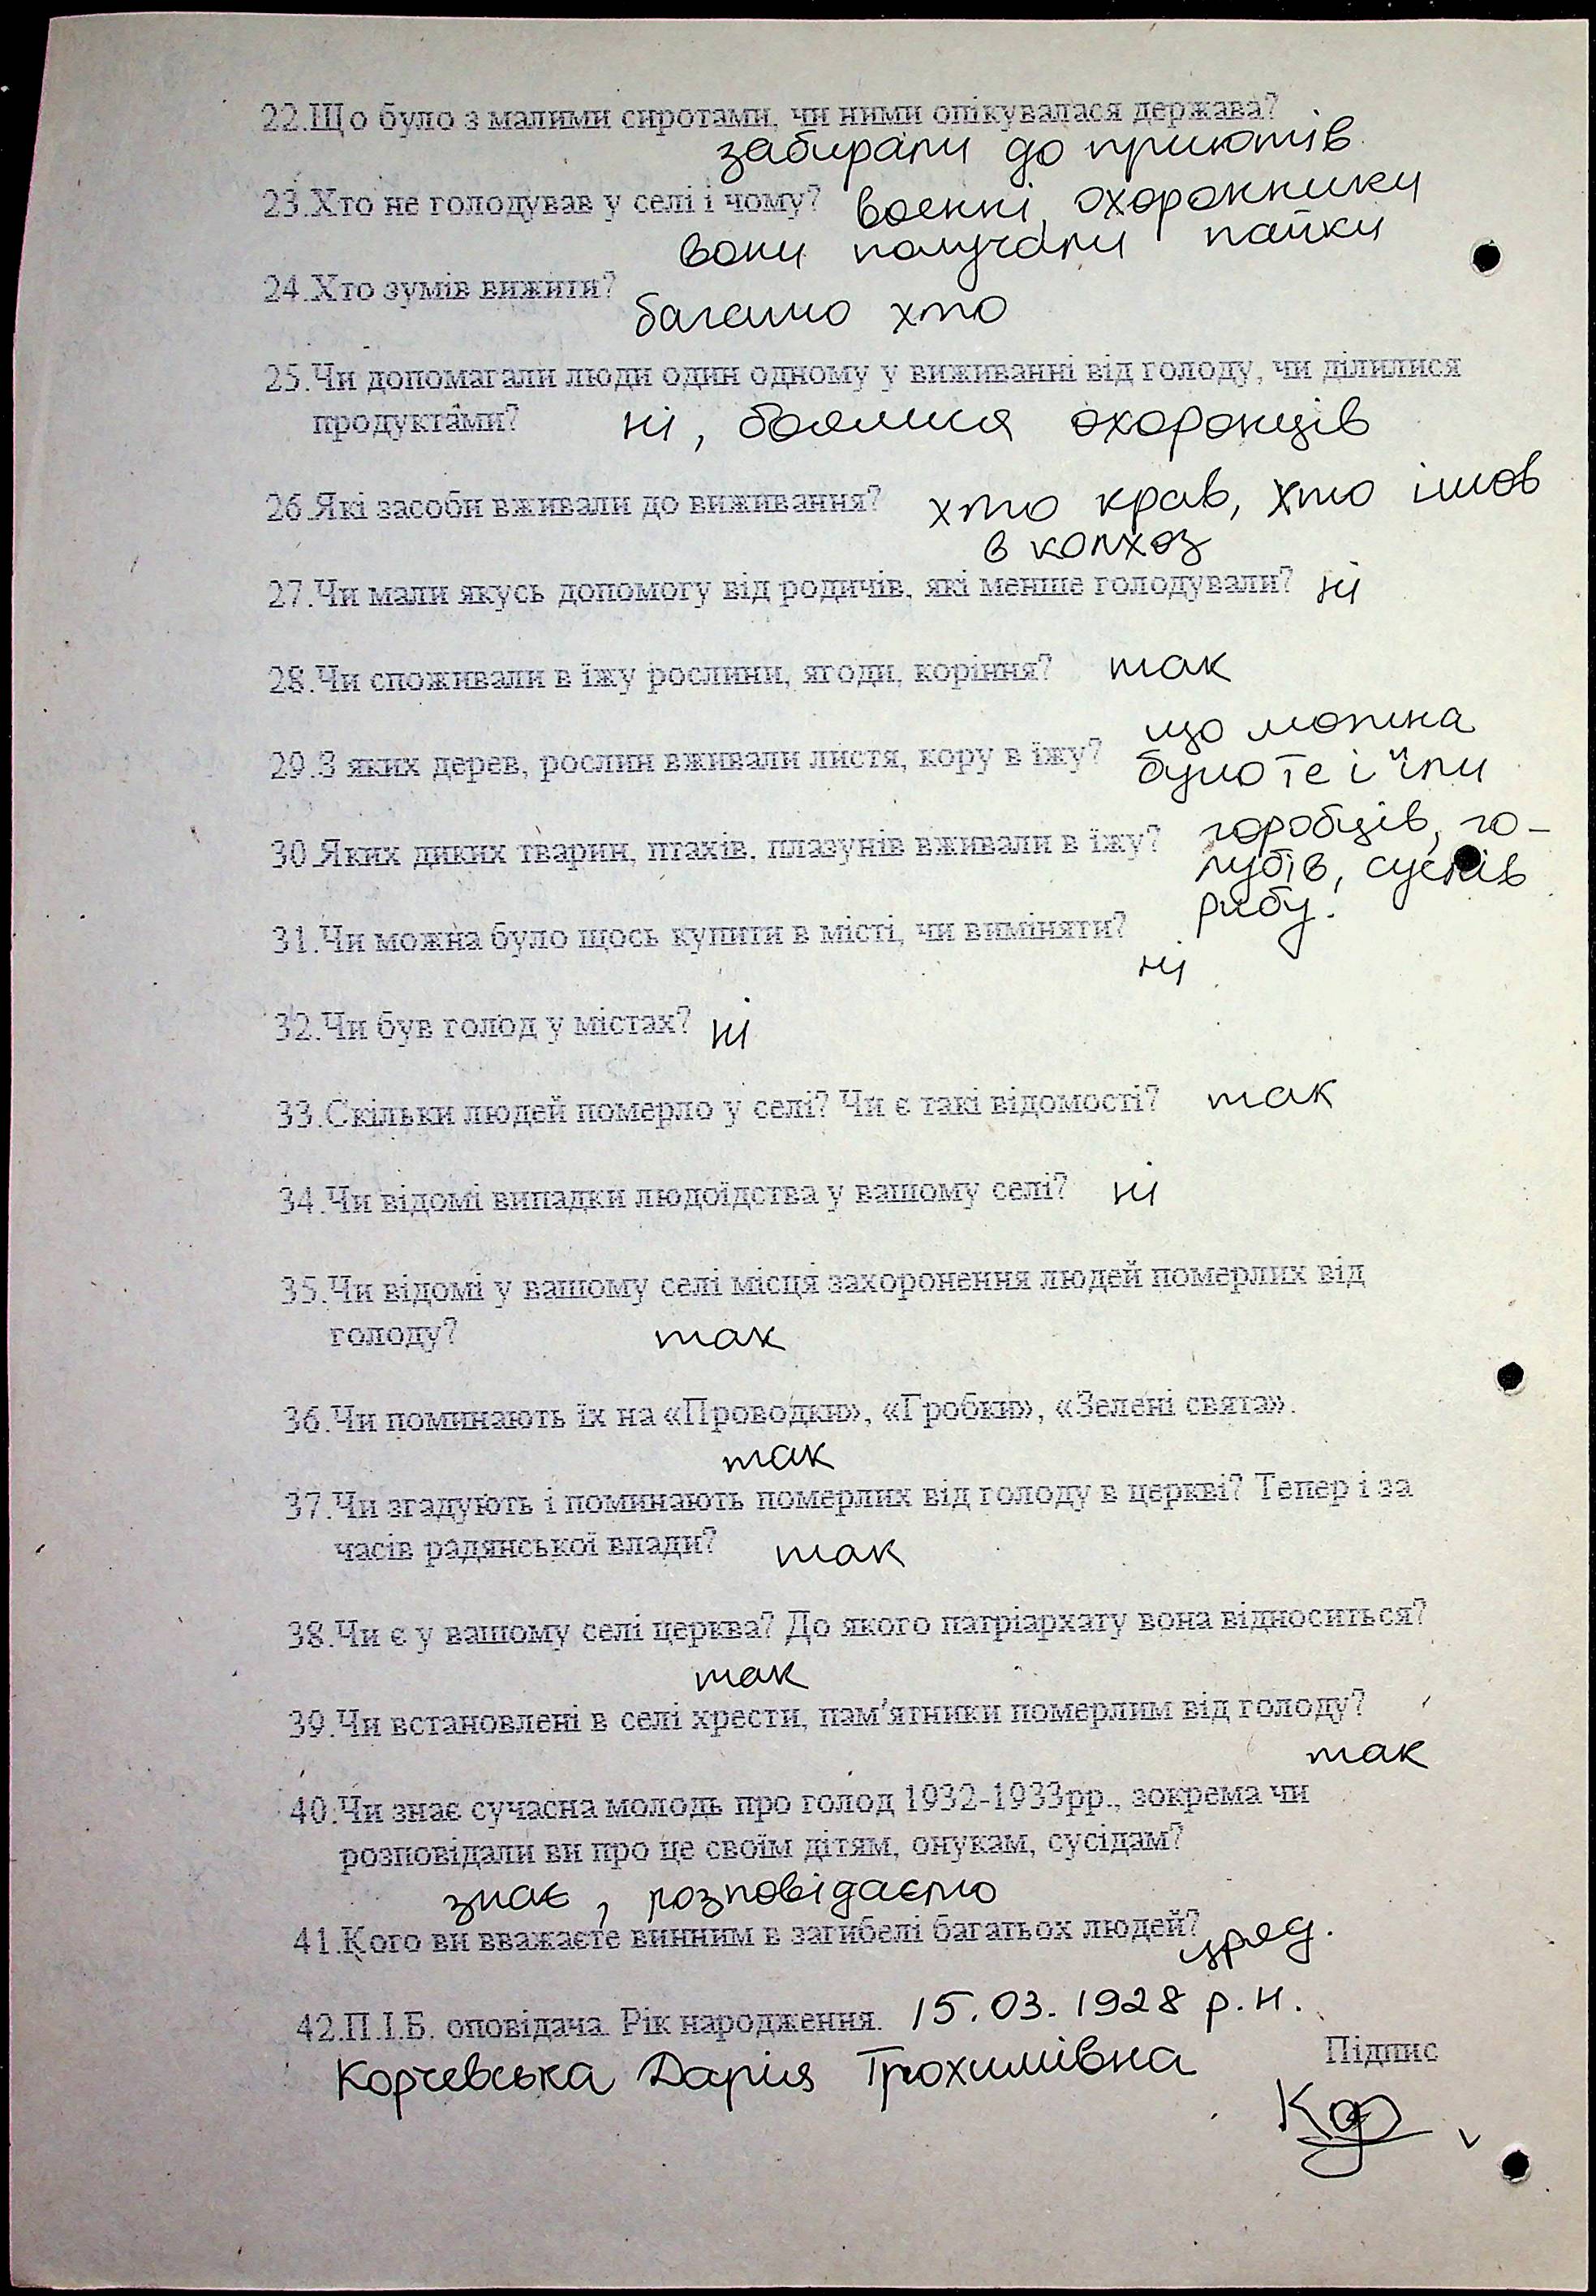 22.Що було з малими сиротами, чи ними опікувалася держава?
забирали до приютів
23.Хто не голодував у селі і чому? воєнні, охоронники
вони получали пайки
24.Хто зумів вижити?
багато хто
25.Чи допомагали люди один одному у виживанні від голоду, чи ділилися
продуктами? ні, боялися охоронців
26.Які засоби вживали до виживання? хто крав, хто ішов
в колхоз
27.Чи мали якусь допомогу від родичів, які менше голодували? ні
28.Чи споживали в їжу рослини, ягоди, коріння? так
що можна
29.З яких дерев, рослин вживали листя, кору в їжу? було те і їли
30.Яких диких тварин, птахів, плазунів вживали в їжу? горобців, го-
лубів, сусліків
рибу.
31.Чи можна було щось купити в місті, чи виміняти?
ні
32.Чи був голод у містах? ні
33.Скільки людей померло у селі? Чи є такі відомості? так
34.Чи відомі випадки людоїдства у вашому селі? ні
35.Чи відомі у вашому селі місця захоронення людей померлих від
голоду? так
36.Чи поминають їх на «Проводки», «Гробки», «Зелені свята».
так
37.Чи згадують і поминають померлих від голоду в церкві? Тепер і за
часів радянської влади? так
38.Чи є у вашому селі церква? До якого патріархату вона відноситься?
так
39.Чи встановлені в селі хрести, пам'ятники померлим від голоду?
так
40.Чи знає сучасна молодь про голод 1932-1933рр., зокрема чи
розповідали ви про це своїм дітям, онукам, сусідам?
знає, розповідаємо
41.Кого ви вважаєте винним в загибелі багатьох людей?
уряд.
42.П.І.Б. оповідача. Рік народження. 15.03.1928 р.н.
Підпис
Корчевська Дарія Трохимівна